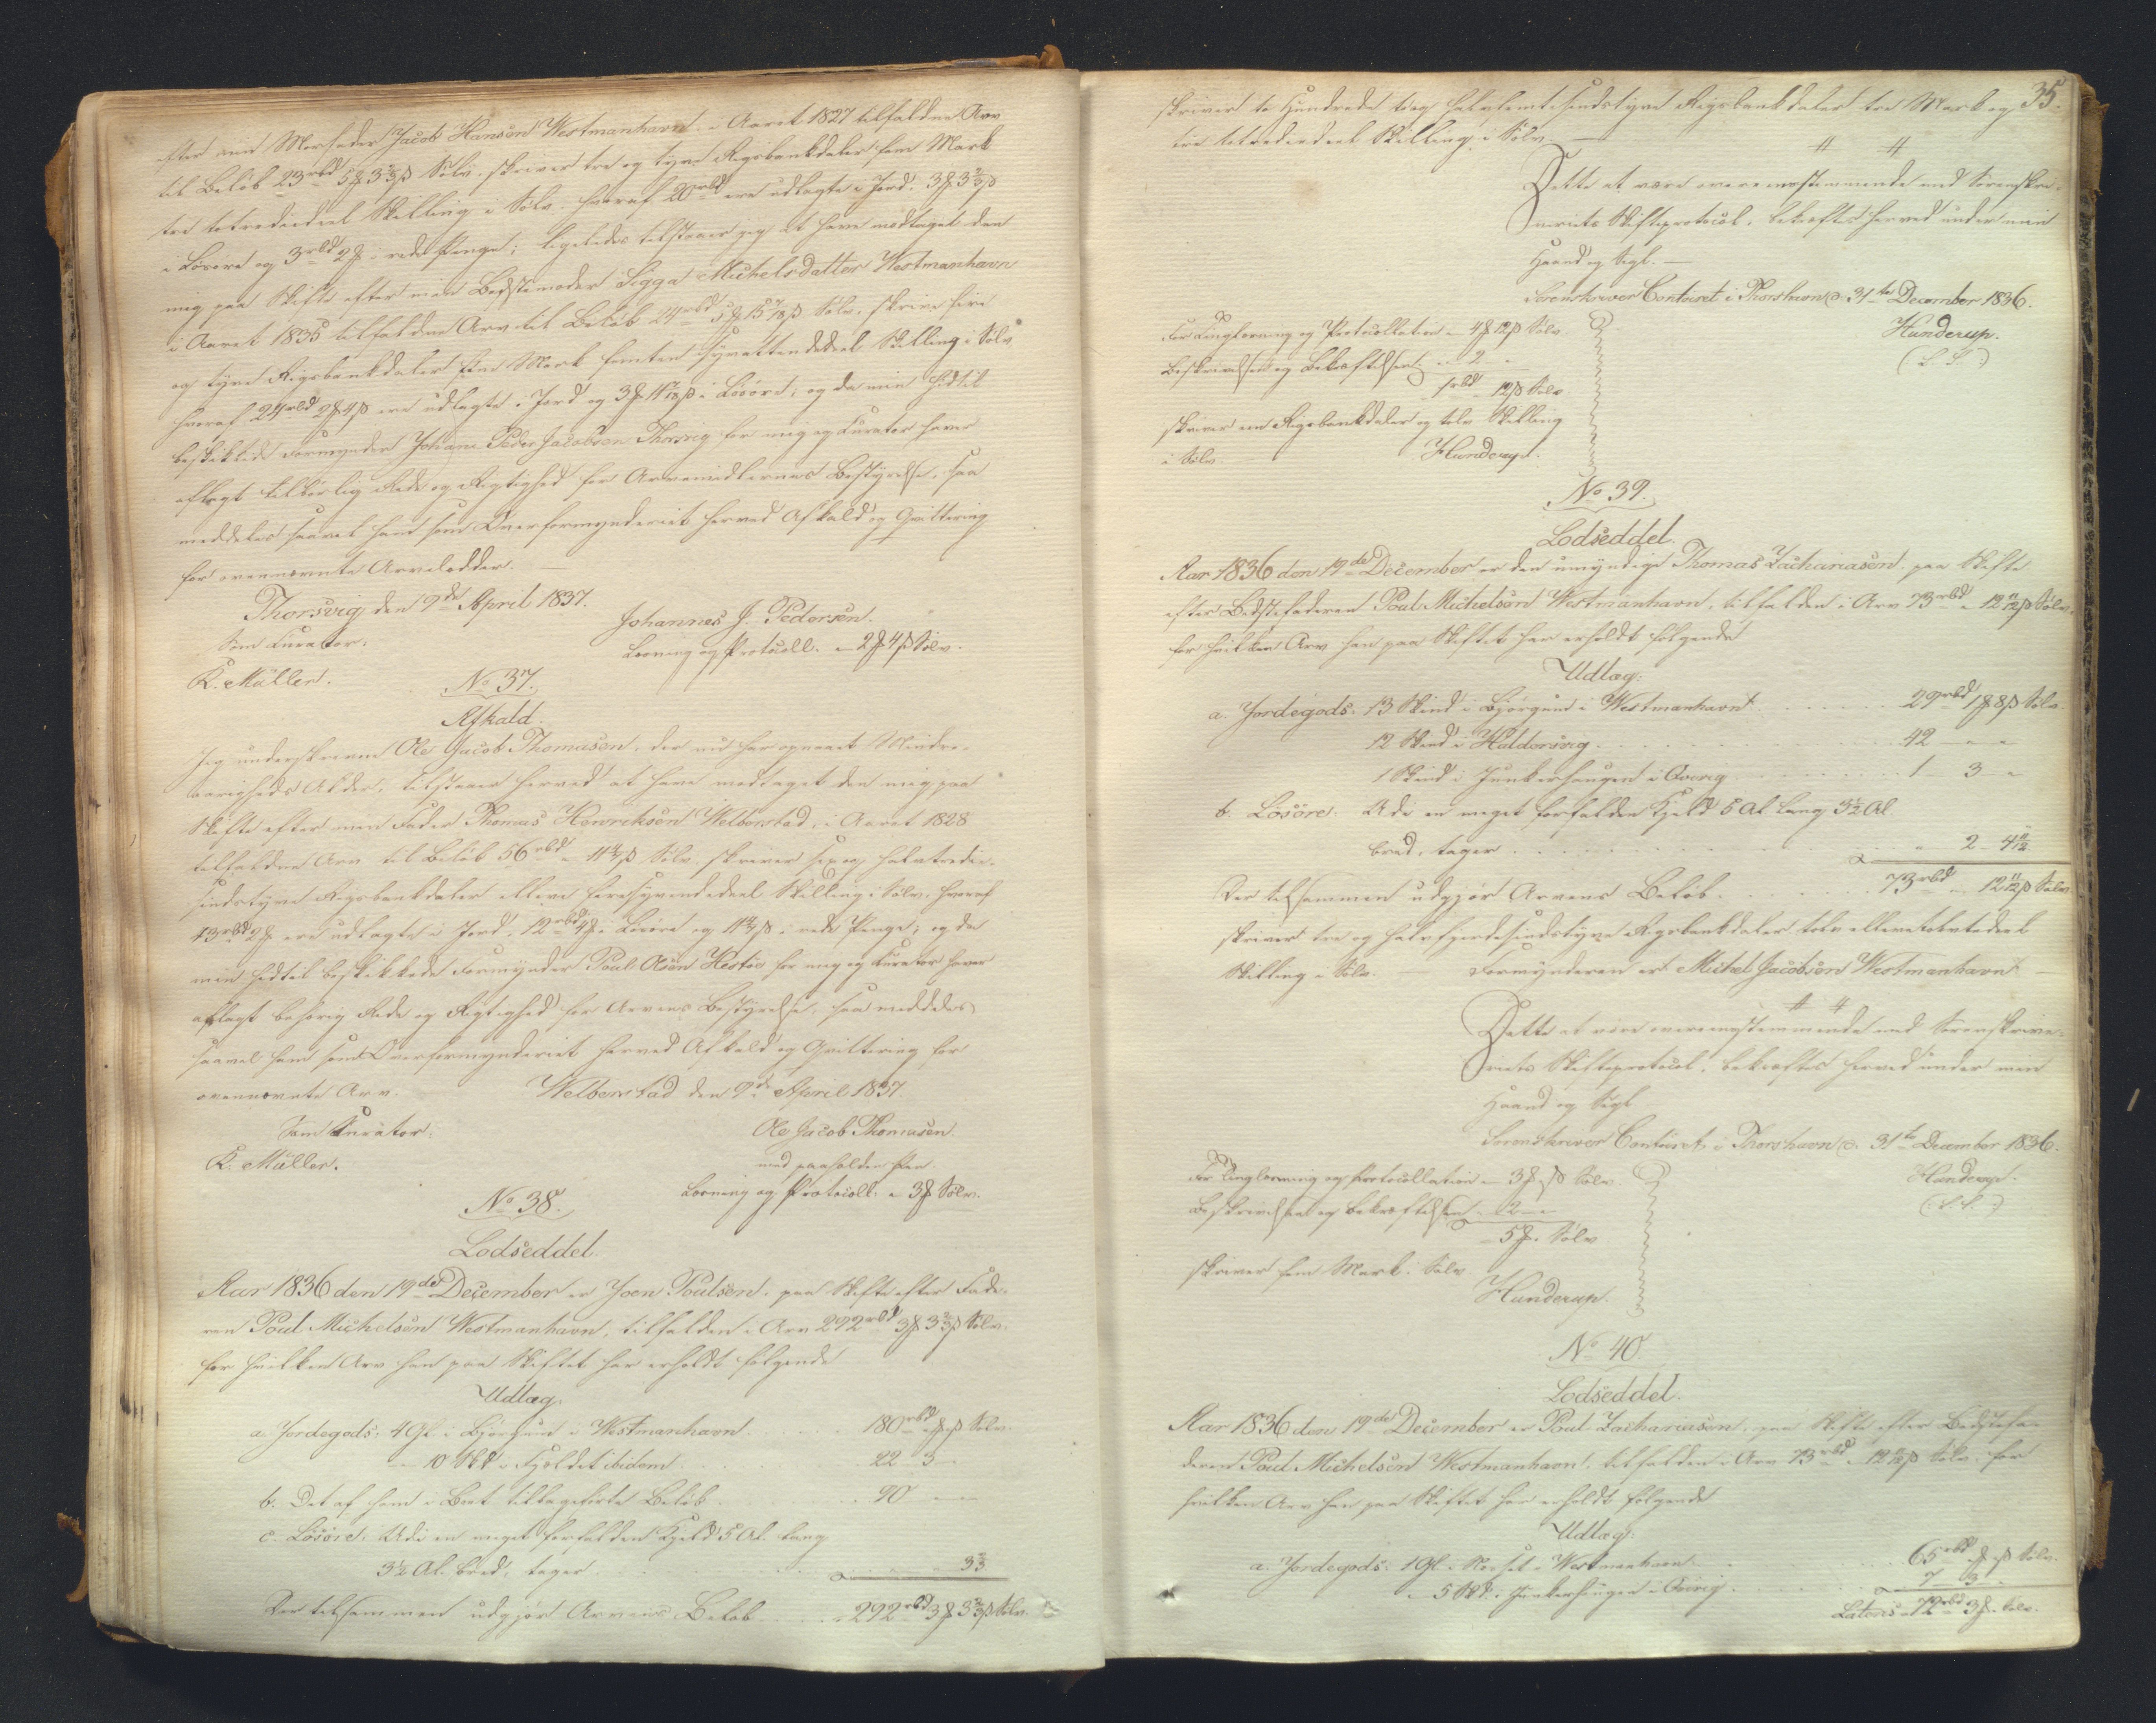 efter min Morfader Jacob Hansen Westmanhavn i Aaret 1827 tilfaldne Arv
til Beløb 23 rbd 5 ₰ 3 2/3 ß Sølv, skriver tre og tyve Rigsbankdaler fem Mark
tre totrediedeel Skilling i Sølv, hvoraf 20 rbd ere udlagte i Jord, 3 ₰ 3 2/3 ß
i Løsøre og 3 rbd 2 ₰ i rede Penge; ligeledes tilstaaer jeg at have modtaget den
mig paa Skifte efter min Bedstemoder Sigga Michelsdatter Westmanhavn
i Aaret 1835 tilfaldne Arv til Beløb 24 rbd 5 ₰ 15 7/18 ß Sølv, skrive fire
og tyve Rigsbankdaler fem Mark femten syvattendedeel Skilling i Sølv
hvoraf 24 rbd 2 ₰ 4 ß ere udlagte i Jord og 3 ₰ 11 7/18 ß i Løsøre; og da min hidtil
beskikkede Formynder Johan Peder Jacobsen Thorsvig for mig og Kurator haver
aflagt tilbørlig Rede og Rigtighed for Arvemidlernes Bestyrelse, saa
meddeles saavel ham som Overformynderiet herved Afkald og Qvittering
for ovennævnte Arvelodder. —
Thorsvig den 9de April 1837.
Johannes J. Pedersen.
Som Curator:
Læsning og Protocoll. - 2 ₰ 4 ß Sølv.
K. Müller.
No 37.
Afkald.
Jeg underskrevne Ole Jacob Thomasen, der nu har opnaaet Mindre-
aarigheds Alder, tilstaaer herved at have modtaget den mig paa
Skifte efter min Fader Thomas Henriksen Welberstad, i Aaret 1828
tilfaldne Arv til Beløb 56 rbd " 11 4/7 ß Sølv, skriver sex og halvtredie-
sindstyve Rigsbankdaler elleve firesyvendedeel Skilling i Sølv, hvoraf
43 rbd 2 ₰ ere udlagte i Jord, 12 rbd 4 ₰ i Løsøre og 11 4/7 ß i rede Penge; og da
min hidtil beskikkede Formynder Poul Olsen Hestøe for mig og Curator haver
aflagt behørig Rede og Rigtighed for Arvens Bestyrelse, saa meddeles
saavel ham som Overformynderiet herved Afkald og Qvittering for
ovennævnte Arv. Welberstad den 9de April 1837.
Som Kurator:
Ole Jacob Thomasen.
K. Müller.
med paaholden Pen.
Læsning og Protocoll. - 3 ₰ Sølv.
No 38.
Lodseddel.
Aar 1836 den 19de December er Joen Poulsen, paa Skifte efter Fade-
ren Poul Michelsen Westmanhavn, tilfalden i Arv 292 rbd 3 ₰ 3 2/3 ß Sølv.
for hvilken Arv han paa Skiftet har erholdt følgende
Udlæg:
a. Jordegods: 4 Gl. i Westmanhavn . . . 180 rbd " ₰ " ß Sølv.
— 10 Skd i Fjældet ibidem . . . 22 - 3 -
b. Det af ham i Boet tilbageførte Beløb . . . 90 - -
c. Løsøre: Udi en meget forfalden Kjeld 5 Al. lang
3½ Al. bred, tager . . . 3 2/3
Der tilsammen udgjør Arvens Beløb . . . 292 rbd 3 ₰ 3 2/3 ß Sølv.
35.
skriver to Hundrede to og halvfemtesindstyve Rigsbankdaler tre Mark og
tre totrediedeel Skilling i Sølv. —
Dette at være overeensstemmende med Sorenskri-
veriets Skifteprotocol, bekræftes herved under min
Haand og Segl. —
Sorenskriver Contoiret i Thorshavn d. 31te December 1836.
Hunderup.
(L. S.)
For Tinglæsning og Protocollation - 4 ₰ 12 ß Sølv.
Beskrivelsen og Bekræftelsen - 2 -
1 rbd " 12 ß Sølv.
skriver een Rigsbankdaler og tolv Skilling
i Sølv.
Hunderup.
No 39.
Lodseddel.
Aar 1836 den 19de December er den umyndige Thomas Zachariasen, paa Skifte
efter Bedstefaderen Poul Michelsen Westmanhavn, tilfalden i Arv 73 rbd " 12 11/12 ß Sølv.
for hvilken Arv han paa Skiftet har erholdt følgende
Udlæg:
a. Jordegods: 13 Skind i Westmanhavn . . . 29 rbd 1 ₰ 8 ß Sølv.
12 Skind i Haldorsvig . . . 42 - -
1 Skind i Junkerhaugen i Qvivig . . . 1 - 3 -
b. Løsøre: Udi en meget forfalden Kjeld 5 Al. lang 3½ Al.
bred, tager . . . " 2 - 4 11/12
Der tilsammen udgjør Arvens Beløb . . . 73 rbd " 12 11/12 ß Sølv.
skriver tre og halvfjerdesindstyve Rigsbankdaler tolv ellevetolvtedeel
Skilling i Sølv. — Formynderen er Michel Jacobsen Westmanhavn. —
Dette at være overeensstemmende med Sorenskrive-
riets Skifteprotocol, bekræftes herved under min
Haand og Segl.
Sorenskriver Contoiret i Thorshavn d. 31te December 1836.
Hunderup.
(L. S.)
For Tinglæsning og Protocollation - 3 ₰ " ß Sølv.
Beskrivelsen og Bekræftelsen - 2 -
- 5 ₰. Sølv
skriver fem Mark i Sølv.
Hunderup.
No 40.
Lodseddel.
Aar 1836 den 19de December er Poul Zachariasen, paa Skifte efter Bedstefa-
deren Poul Michelsen Westmanhavn, tilfalden i Arv 73 rbd " 12 11/12 ß Sølv, for
hvilken Arv han paa Skiftet har erholdt følgende
Udlæg:
a. Jordegods: 1 Gl. i Westmanhavn . . . 65 rbd " ₰ " ß Sølv.
" 5 Skd. i Junkerhaugen i Qvivig . . . 7 - 3 -
Lateris 72 rbd 3 ₰. Sølv.